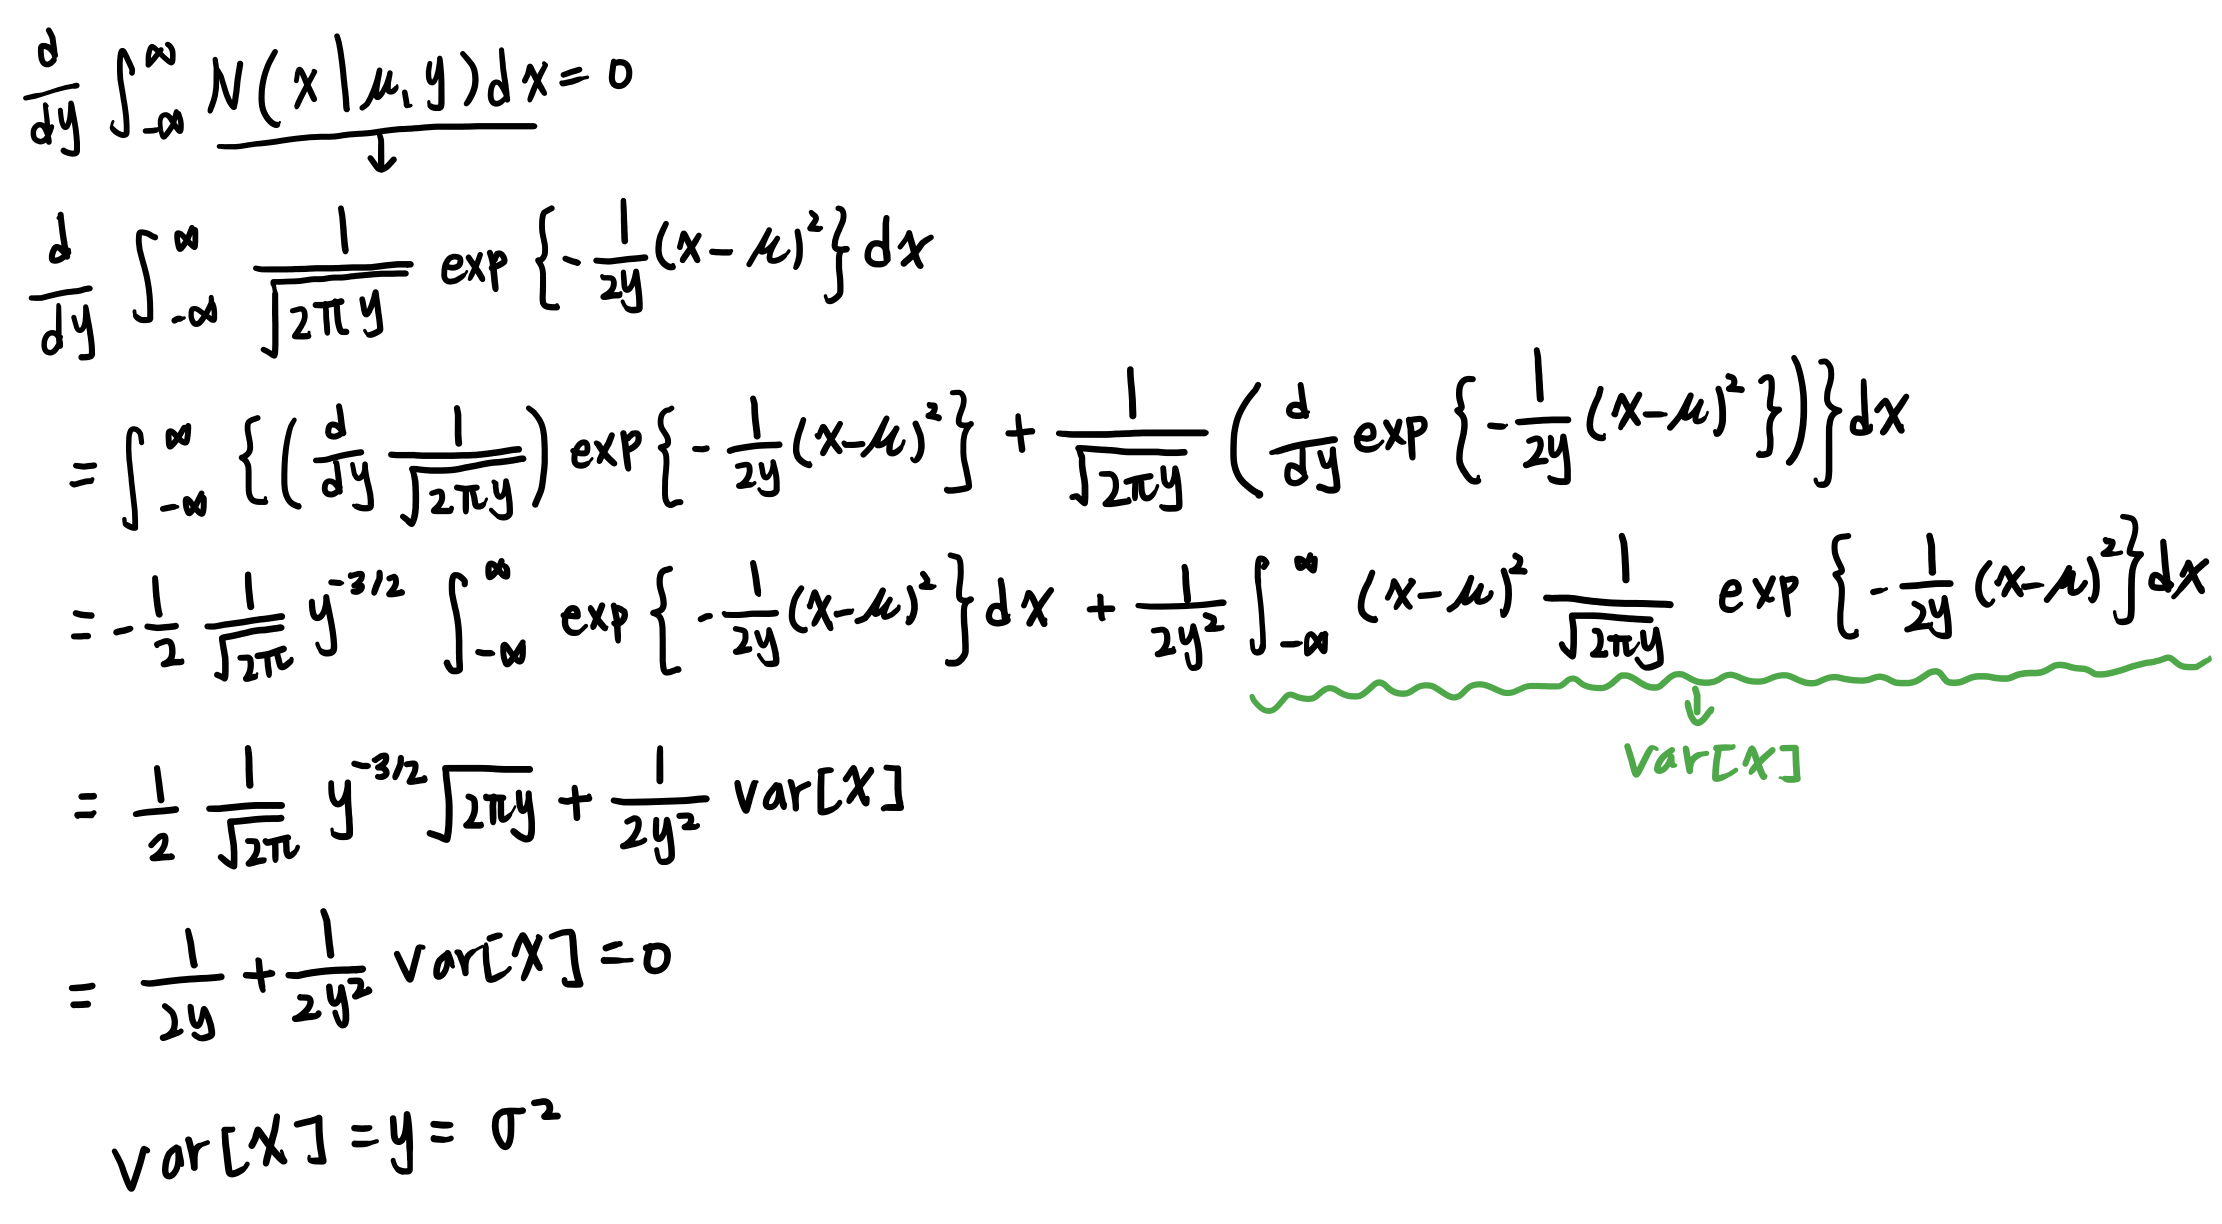 d/dy ∫_{-∞}^{∞} N(x|μ,y)dx = 0
↓
d/dy ∫_{-∞}^{∞} 1/√(2πy) exp{-1/2y (x-μ)²}dx
= ∫_{-∞}^{∞} {(d/dy 1/√(2πy)) exp{-1/2y (x-μ)²} + 1/√(2πy) (d/dy exp{-1/2y (x-μ)²})}dx
= -1/2 1/√(2π) y^{-3/2} ∫_{-∞}^{∞} exp{-1/2y (x-μ)²}dx + 1/2y² ∫_{-∞}^{∞} (x-μ)² 1/√(2πy) exp{-1/2y (x-μ)²}dx
↓
var[x]
= 1/2 1/√(2π) y^{-3/2} √(2πy) + 1/2y² var[x]
= 1/2y + 1/2y² var[x] = 0
var[x] = y = σ²